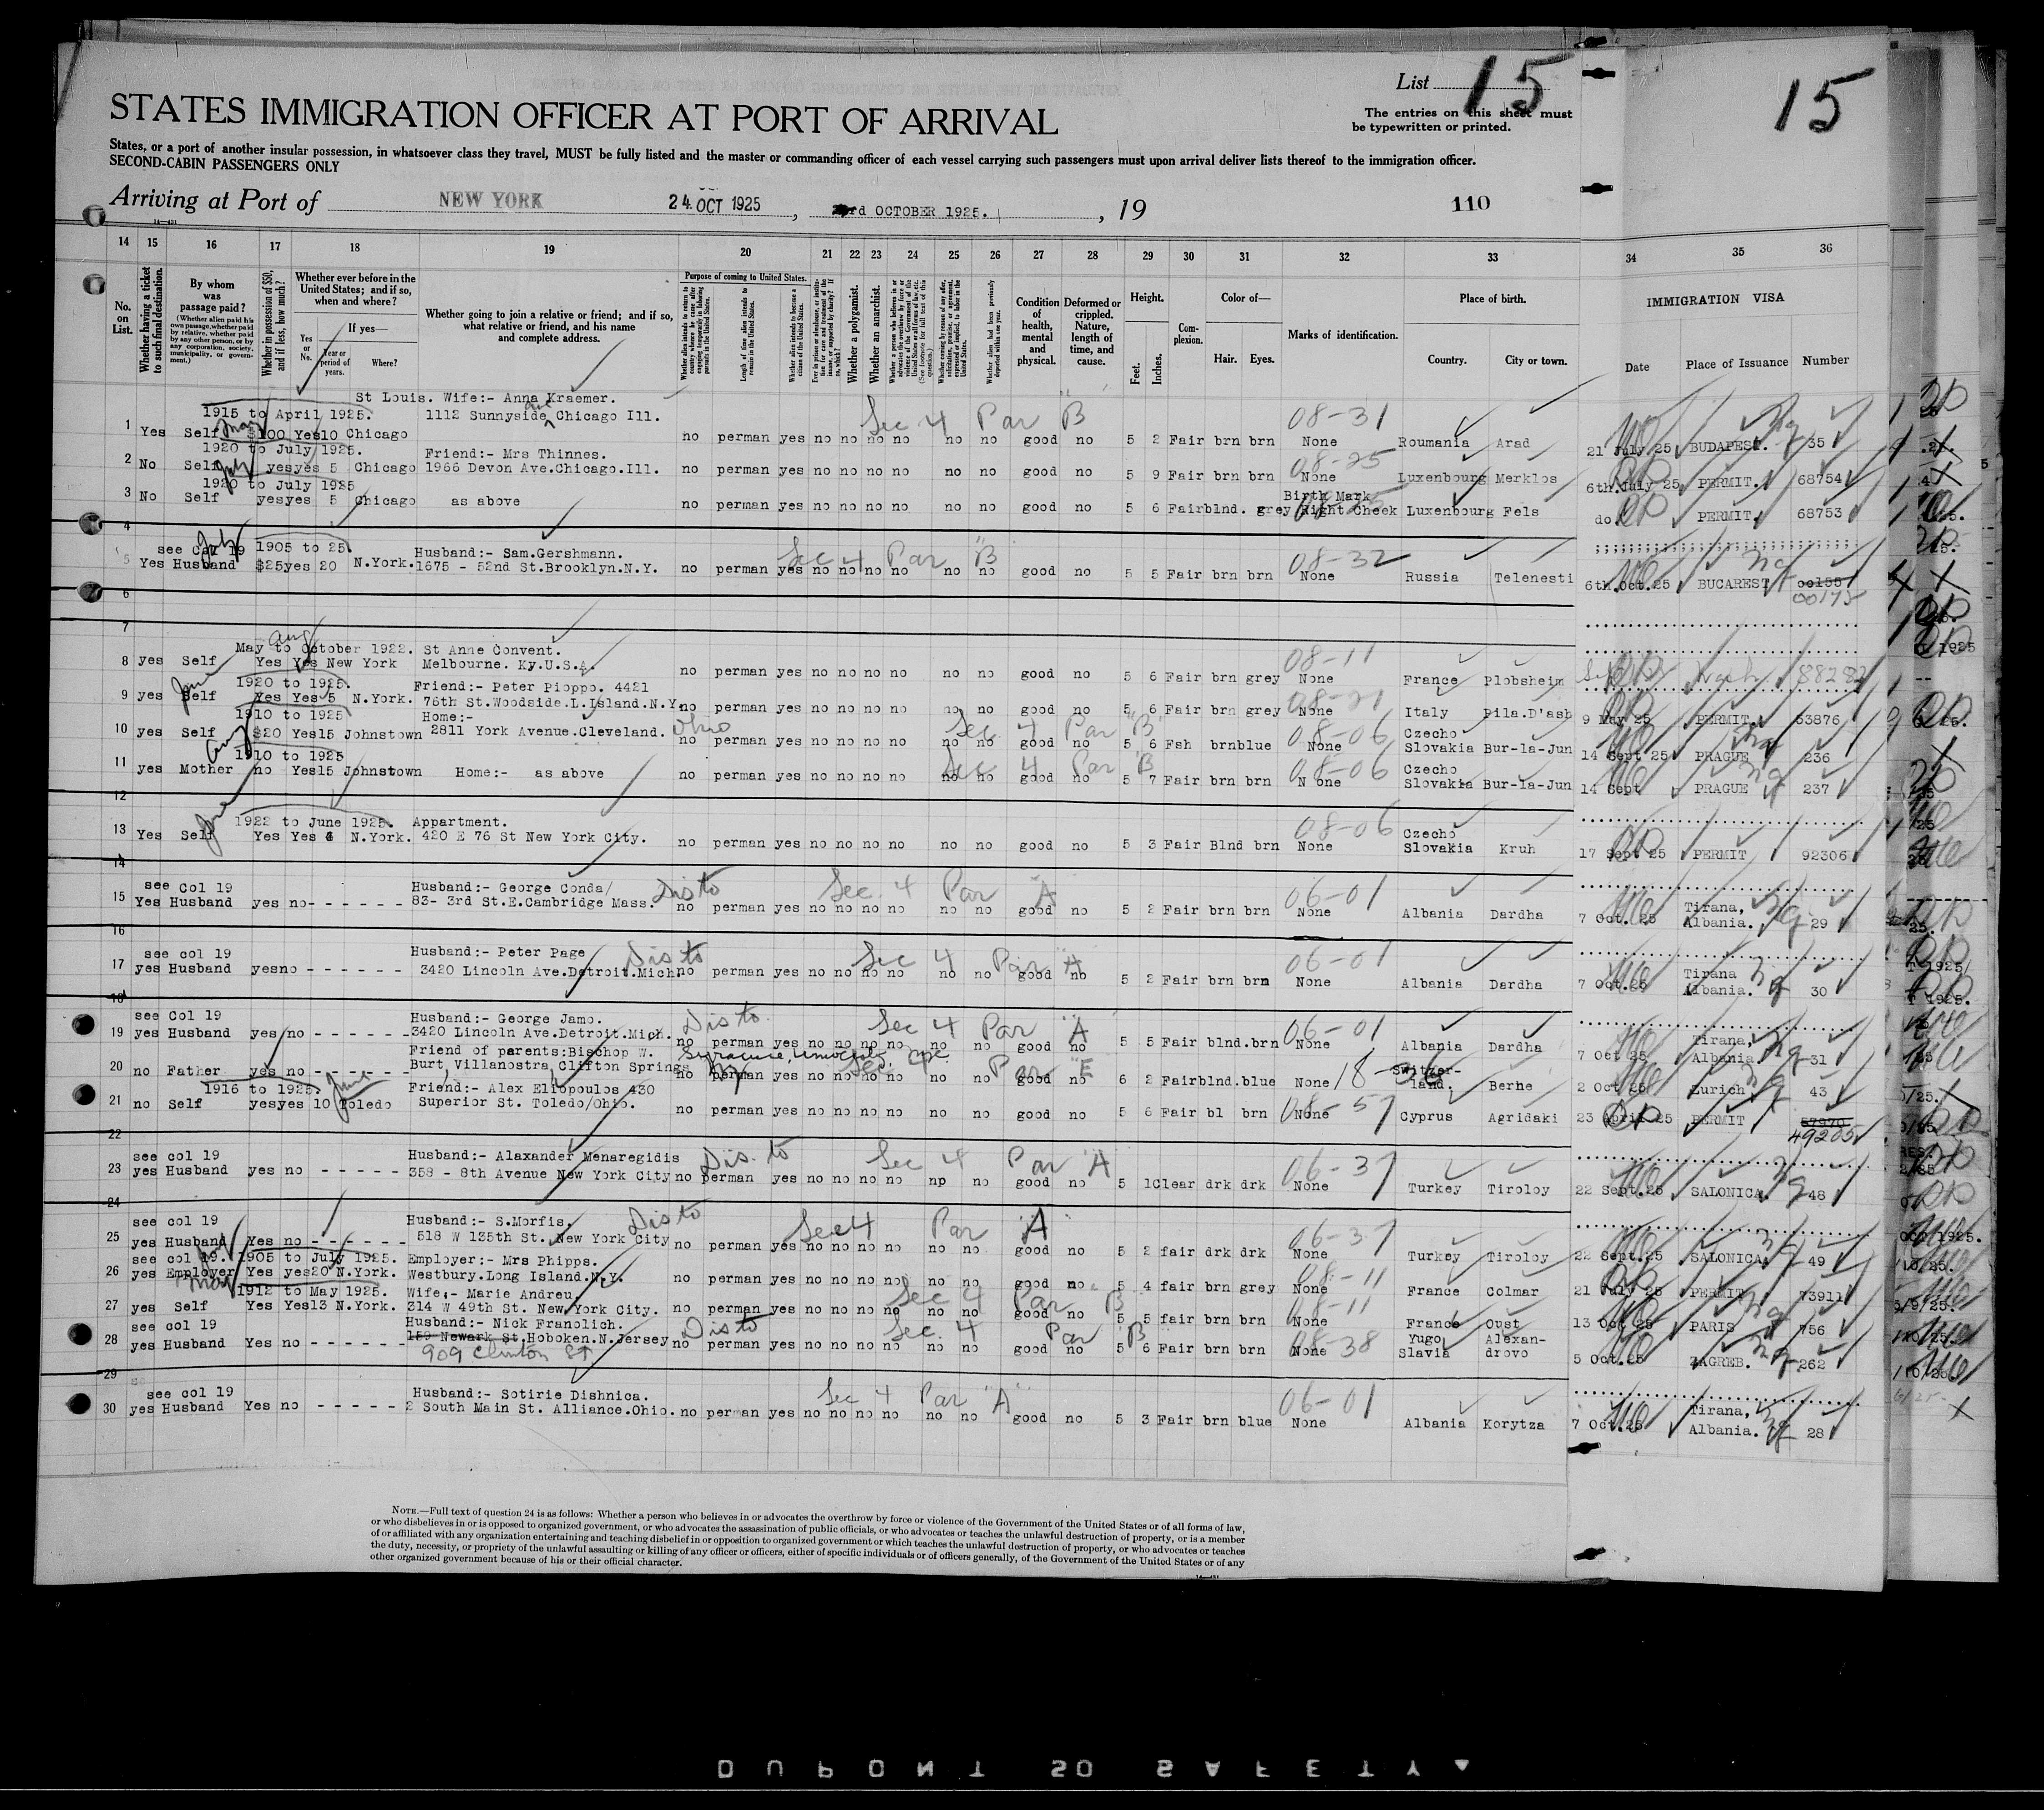 List 15
15
STATES IMMIGRATION OFFICER AT PORT OF ARRIVAL
The entries on this sheet must
be typewritten or printed.
States, or a port of another insular possession, in whatsoever class they travel, MUST be fully listed and the master or commanding officer of each vessel carrying such passengers must upon arrival deliver lists thereof to the immigration officer.
SECOND-CABIN PASSENGERS ONLY
Arriving at Port of NEW YORK 24 OCT 1925, rd OCTOBER 1925. , 19 110
14 15 16 17 18 19 20 21 22 23 24 25 26 27 28 29 30 31 32 33 34 35 36
No. on List.
Whether having a ticket to such final destination.
By whom was passage paid?
(Whether alien paid his own passage, whether paid by relative, whether paid by any other person, or by any corporation, society, municipality, or government.)
Whether in possession of $50, and if less, how much?
Whether ever before in the United States; and if so, when and where?
Yes or No.
If yes—
Year or period of years.
Where?
Whether going to join a relative or friend; and if so, what relative or friend, and his name and complete address.
Purpose of coming to United States.
Whether alien intends to return to country whence he came after engaging temporarily in laboring pursuits in the United States.
Length of time alien intends to remain in the United States.
Whether alien intends to become a citizen of the United States.
Whether a polygamist.
Whether an anarchist.
Condition of health, mental and physical.
Deformed or crippled. Nature, length of time, and cause.
Height.
Feet. Inches.
Complexion.
Color of—
Hair. Eyes.
Marks of identification.
Place of birth.
Country. City or town.
IMMIGRATION VISA
Date Place of Issuance Number
St Louis. Wife:- Anna Kraemer.
1915 to April 1925. 1112 Sunnyside ave Chicago Ill. Sec 4 Par "B" 08-31
1 Yes Self $100 Yes10 Chicago no perman yes no no no no no no good no 5 2 Fair brn brn None Roumania Arad 21 July 25 BUDAPEST. 35
1920 to July 1925. Friend:- Mrs Thinnes. 08-25
2 No Self yesyes 5 Chicago 1966 Devon Ave.Chicago.Ill. no perman yes no no no no no no good no 5 9 Fair brn brn None Luxenbourg Merklos 6th.July 25 PERMIT. 68754
1920 to July 1925 Birth Mark
3 No Self yesyes 5 Chicago as above no perman yes no no no no no no good no 5 6 Fairblnd. grey Right Cheek Luxenbourg Fels do. PERMIT. 68753
4
see Col 19 July 1905 to 25. Husband:- Sam.Gershmann. Sec 4 Par "B" 08-32
5 Yes Husband $25yes 20 N.York. 1675 - 52nd St.Brooklyn.N.Y. no perman yes no no no no no no good no 5 5 Fair brn brn None Russia Telenesti 6th.Oct.25 BUCAREST 00155
00175
6
7
Aug
May to October 1922. St Anne Convent. 08-11
8 yes Self Yes Yes New York Melbourne. Ky.U.S.A. no perman yes no no no no no no good no 5 6 Fair brn grey None France Plobsheim 88282
June 1920 to 1925. Friend:- Peter Pioppo. 4421 08-21
9 yes Self Yes Yes 5 N.York. 76th St.Woodside.L.Island.N.Y. no perman yes no no no no no no good no 5 6 Fair brn grey None Italy Pila.D'asb 9 May 25 PERMIT. 53876
1910 to 1925 Home:- Sec 4 Par "B" 08-06 Czecho
10 yes Self $20 Yes15 Johnstown 2811 York Avenue.Cleveland. Ohio no perman yes no no no no no no good no 5 6 Fsh brnblue None Slovakia Bur-la-Jun 14 Sept 25 PRAGUE 236
Aug 1910 to 1925 Sec 4 Par "B" 08-06 Czecho
11 yes Mother no Yes15 Johnstown Home:- as above no perman yes no no no no no no good no 5 7 Fair brn brn N one Slovakia Bur-la-Jun 14 Sept PRAGUE 237
12
June 1922 to June 1925. Appartment. 08-06 Czecho
13 Yes Self Yes Yes 4 N.York. 420 E 76 St New York City. no perman yes no no no no no no good no 5 3 Fair Blnd brn None Slovakia Kruh 17 Sept 25 PERMIT 92306
14
see Col 19 Husband:- George Conda/ Dis to Sec. 4 Par "A" 06-01 Tirana,
15 Yes Husband yes no- - - - - - 83- 3rd St.E.Cambridge Mass. no perman yes no no no no no no good no 5 2 Fair brn brn None Albania Dardha 7 Oct. 25 Albania. 29
16
see col 19 Husband:- Peter Page Dis to Sec 4 Par "A" 06-01 Tirana
17 yes Husband yesno - - - - - - 3420 Lincoln Ave.Detroit.Mich. no perman yes no no no no no no good no 5 2 Fair brn brn None Albania Dardha 7 Oct.25 Albania. 30
18
see Col 19 Husband:- George Jamo. Dis to Sec 4 Par "A" 06-01 Tirana,
19 yes Husband yes no - - - - - - 3420 Lincoln Ave.Detroit.Mich. no perman yes no no no no no no good no 5 5 Fair blnd.brn None Albania Dardha 7 Oct 25 Albania 31
Friend of parents:Bischop W. Syracuse, University Sec. 4 Par "E" Switzer-
20 no Father yes no - - - - - - Burt, Villanostra, Clifton Springs NY no perman yes no no no no no no good no 6 2 Fairblnd.blue None land. Berne 2 Oct 25 Zurich 43
1916 to 1925. June Friend:- Alex Eliopoulos 430 08-57
21 no Self yesyes 10 Toledo Superior St. Toledo/Ohio. no perman yes no no no no no no good no 5 6 Fair bl brn None Cyprus Agridaki 23 April 25 PERMIT 57970
49205
22
see col 19 Husband:- Alaxander Menaregidis Dis. to Sec 4 Par "A" 06-37
23 yes Husband yes no - - - - - 358 - 8th Avenue New York City no perman yes no no no no np no good no 5 1Clear drk drk None Turkey Tiroloy 22 Sept.25 SALONICA. 48
24
see col 19 Husband:- S.Morfis. Dis to Sec4 Par "A" 06-37
25 yes Husband Yes no - - - - - - 518 W 125th St. New York City no perman yes no no no no no no good no 5 2 fair drk drk None Turkey Tiroloy 22 Sept.25 SALONICA 49
see col 19. 1905 to July 1925. Employer:- Mrs Phipps. 08-11
26 yes Employer Yes yes20 N.York. Westbury.Long Island.N.Y. no perman yes no no no no no no good no 5 4 fair brn grey None France Colmar 21 July 25 PERMIT 73911
May 1912 to May 1925. Wife.- Marie Andreu. Sec 4 Par B 08-11
27 yes Self Yes Yes13 N.York. 314 W 49th St. New York City. no perman yes no no no no no no good no 5 5 fair brn brn None France Oust 13 Oct 25 PARIS 756
see col 19 Husband:- Nick Franolich. Dis to Sec. 4 Par "B" 08-38 Yugo Alexan-
28 yes Husband Yes no - - - - - - 159 Newark St.Hoboken.N.Jersey no perman yes no no no no no no good no 5 6 Fair brn brn None Slavia drovo 5 Oct.25 ZAGREB. 262
909 Clinton St
29
see col 19 Husband:- Sotirie Dishnica. Sec 4 Par "A" 06-01 Tirana,
30 yes Husband Yes no - - - - - 2 South Main St. Alliance.Ohio. no perman yes no no no no no no good no 5 3 Fair brn blue None Albania Korytza 7 Oct.25 Albania. 28
NOTE.—Full text of question 24 is as follows: Whether a person who believes in or advocates the overthrow by force or violence of the Government of the United States or of all forms of law,
or who disbelieves in or is opposed to organized government, or who advocates the assassination of public officials, or who advocates or teaches the unlawful destruction of property, or is a member
of or affiliated with any organization entertaining and teaching disbelief in or opposition to organized government or which teaches the unlawful destruction of property, or who advocates or teaches
the duty, necessity, or propriety of the unlawful assaulting or killing of any officer or officers, either of specific individuals or of officers generally, of the Government of the United States or of any
other organized government because of his or their official character.
DUPONT SAFETY